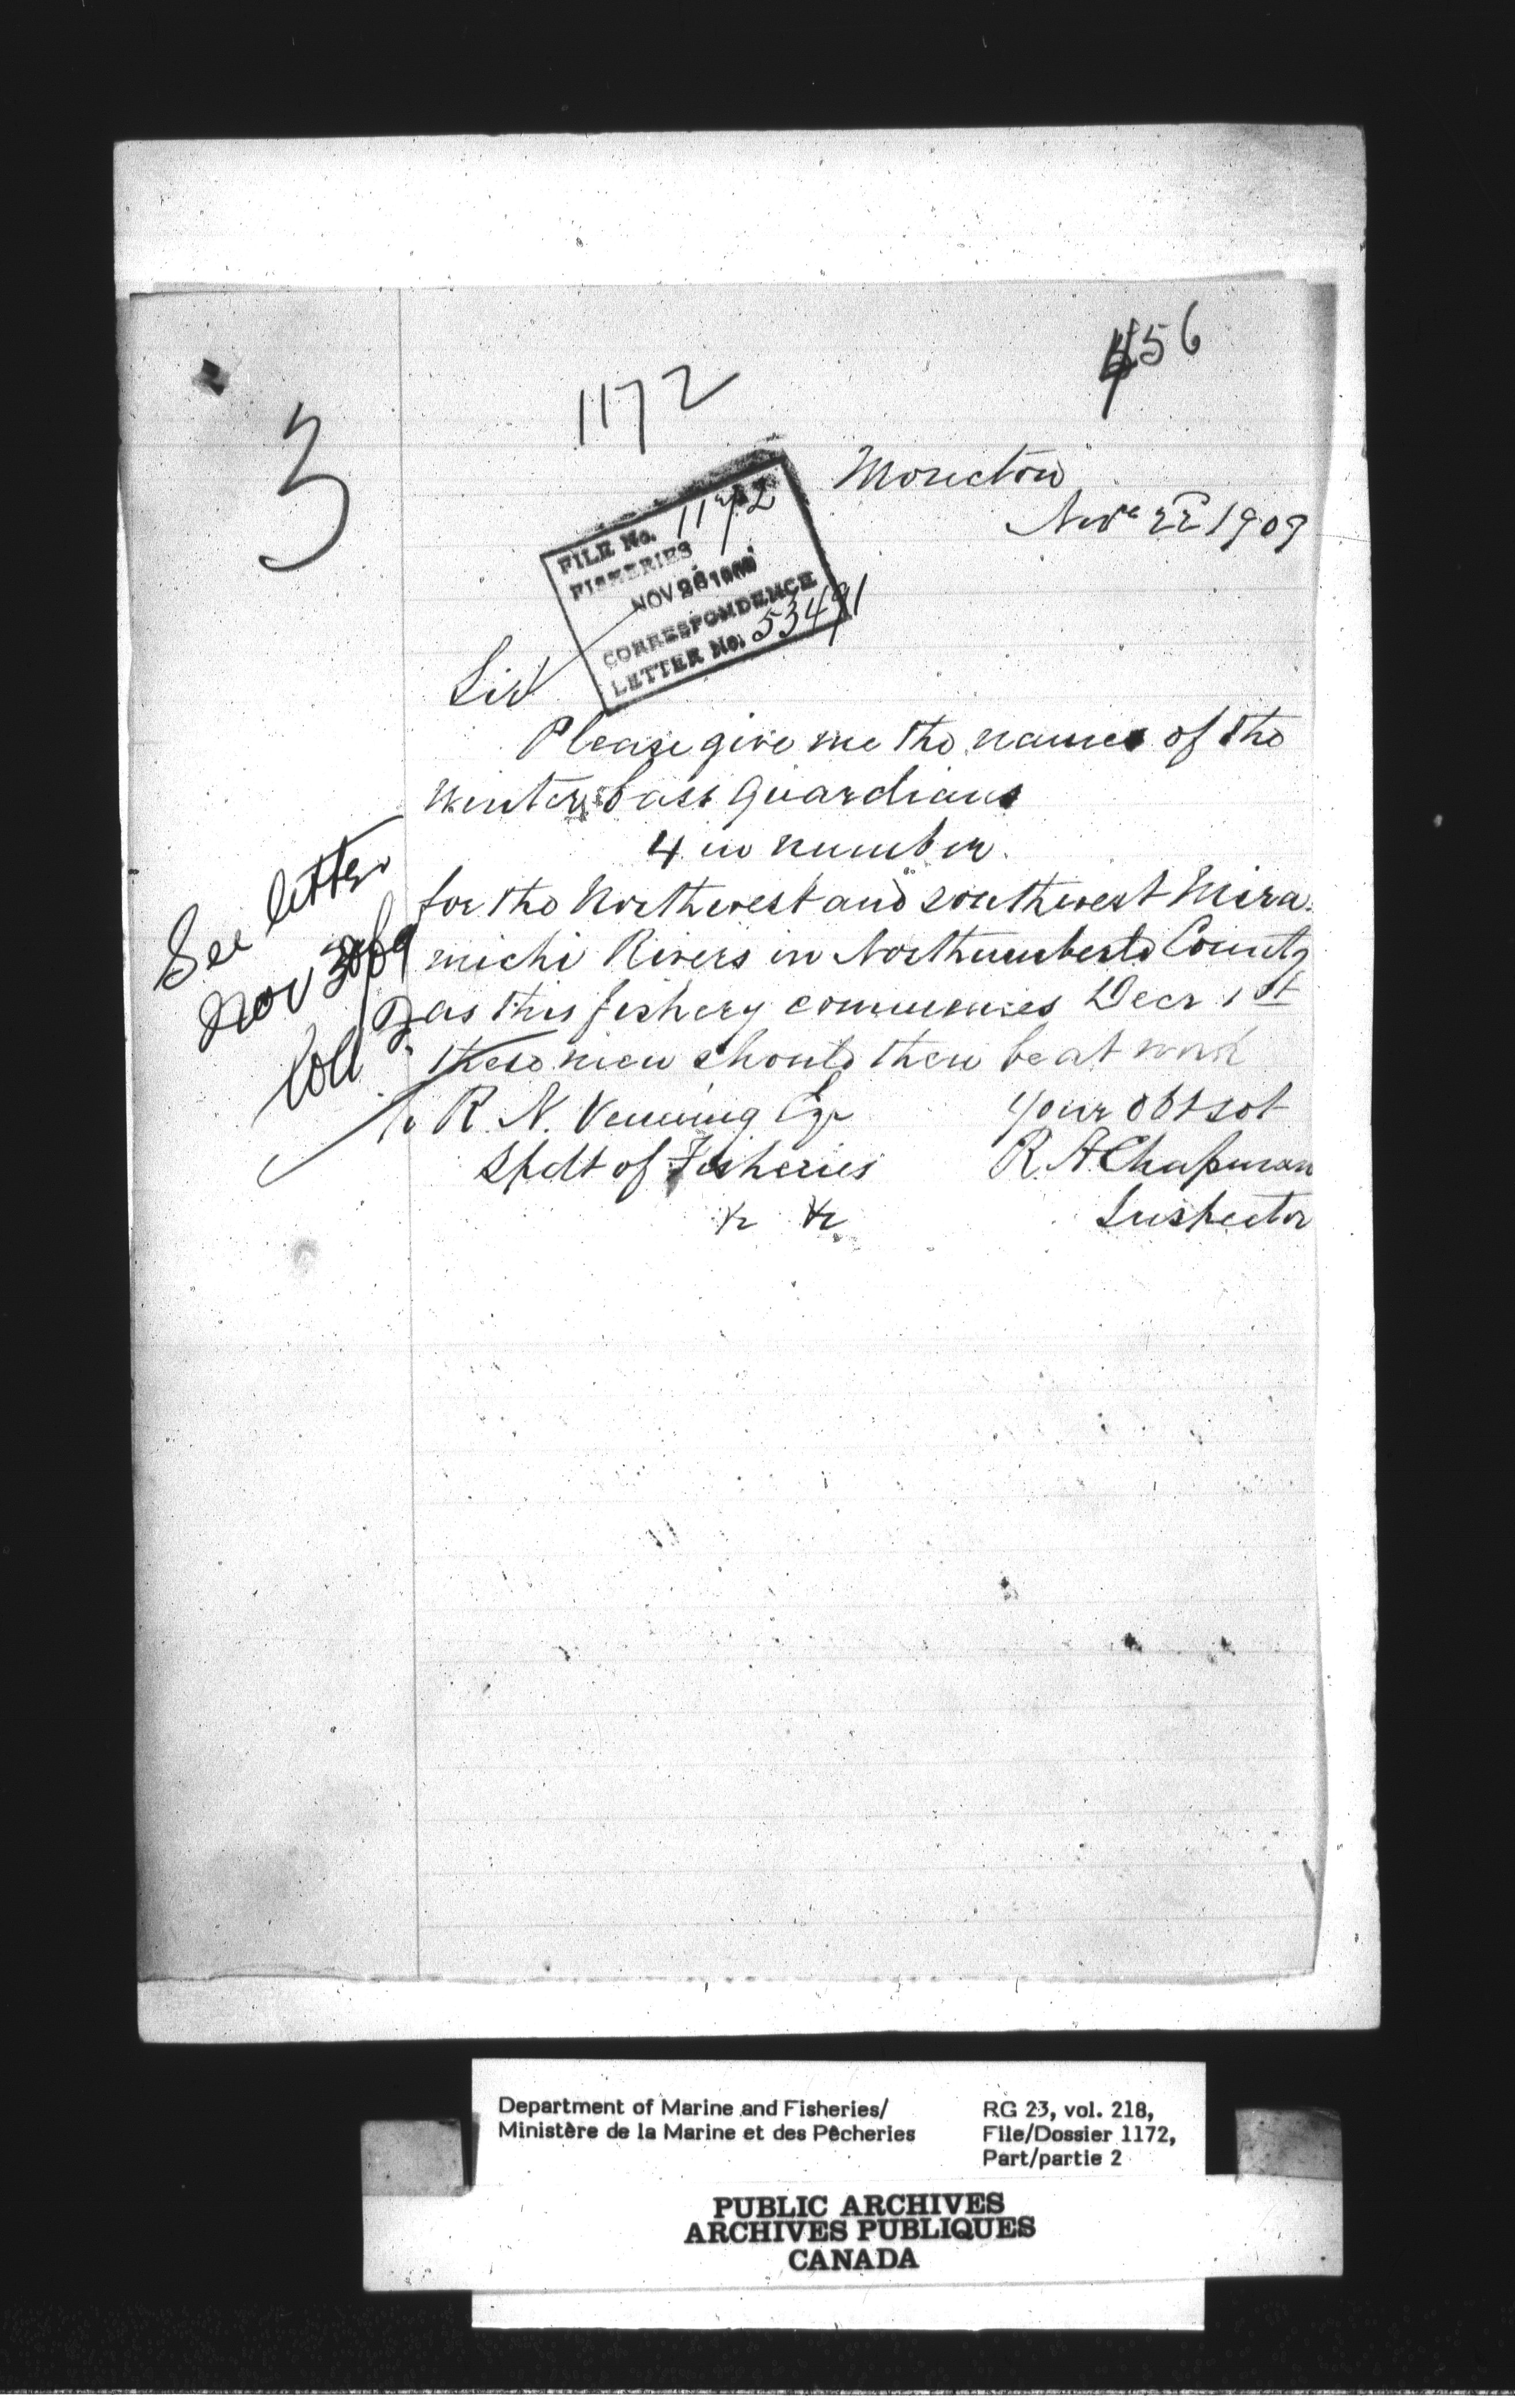 456
1172
3
Moncton
Nov 22 1909
FILE No. 1172
FISHERIES
NOV 26 1909
CORRESPONDENCE
LETTER No. 53491
Sir
Please give me the names of the
winter bass Guardians
4 in number.
for the Northwest and southwest Mira-
michi Rivers in Northumberld County
as this fishery commences Decr 1st
these men should then be at work
See letter
Nov 30/09
To R. N. Venning Esqr
Your obt svt
Spdt of Fisheries
R. A Chapman
&c &c
Inspector
Department of Marine and Fisheries/
Ministère de la Marine et des Pêcheries
RG 23, vol. 218,
File/Dossier 1172,
Part/partie 2
PUBLIC ARCHIVES
ARCHIVES PUBLIQUES
CANADA